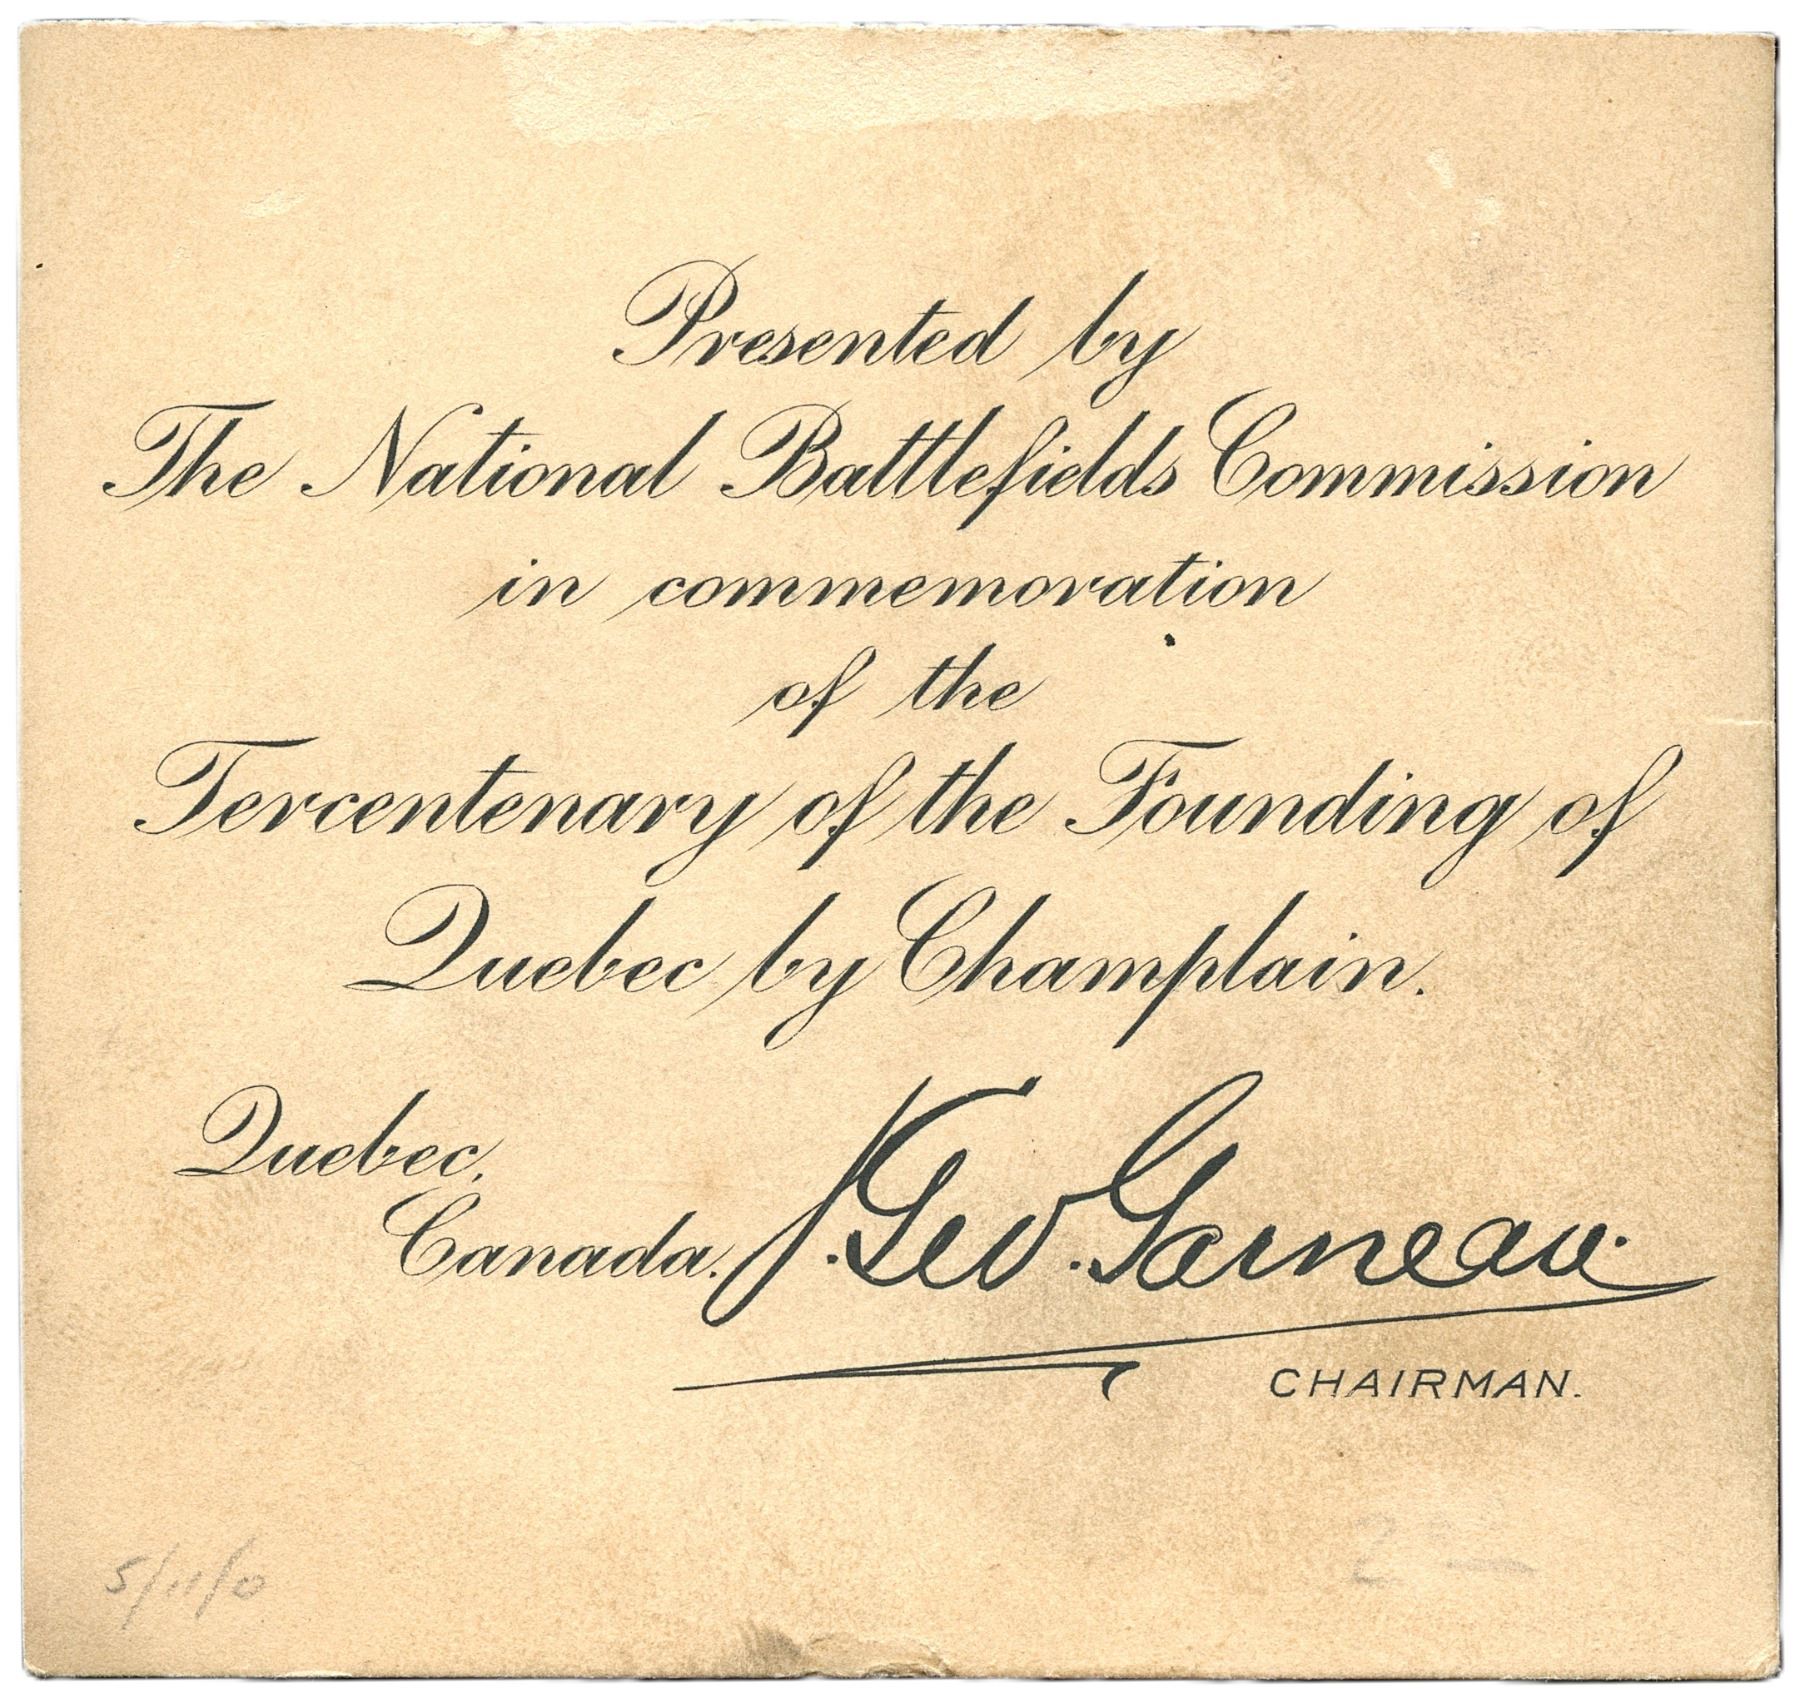 Presented by
The National Battlefields Commission
in commemoration
of the
Tercentenary of the Founding of
Quebec by Champlain.
Quebec,
Canada.
J. Geo. Garneau.
CHAIRMAN.
5/11/0
2 —